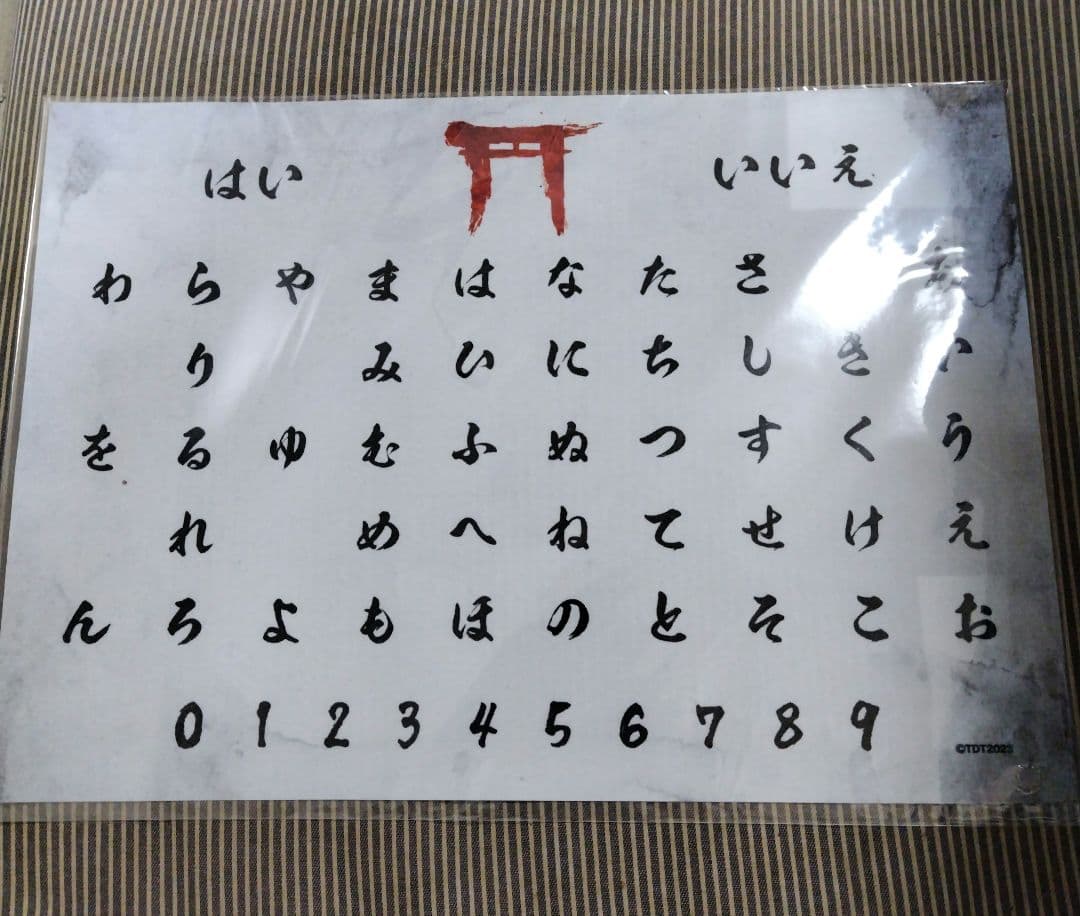 はい いいえ
わ らやまはなたさ あ
り みひにちしきい
をるゆむふぬつすくう
れ めへねてせけえ
んろよもほのとそこお
0 1 2 3 4 5 6 7 8 9
©TDT2023